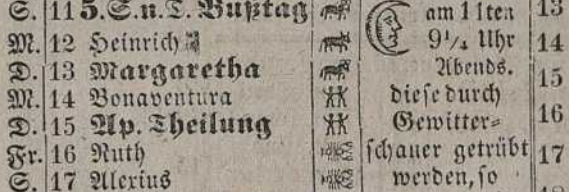 S. 11 5. S. n. T. Bußtag am 11ten 13
M. 12 Heinrich 9¼ Uhr 14
D. 13 Margaretha Abends. 15
M. 14 Bonaventura diese durch
D. 15 Ap. Theilung Gewitter= 16
Fr. 16 Ruth schauer getrübt 17
S. 17 Alexius werden, so